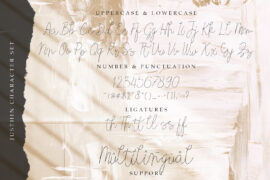 UPPERCASE & LOWERCASE
Aa Bb Cc Dd Ee Ff Gg Hh Ii Jj Kk Ll Mm
Nn Oo Pp Qq Rr Ss Tt Uu Vv Ww Xx Yy Zz
NUMBER & PUNCTUATION
1234567890
LIGATURES
th Th tt ll ss ff
Multilingual
SUPPORT
JUSTHIN CHARACTER SET